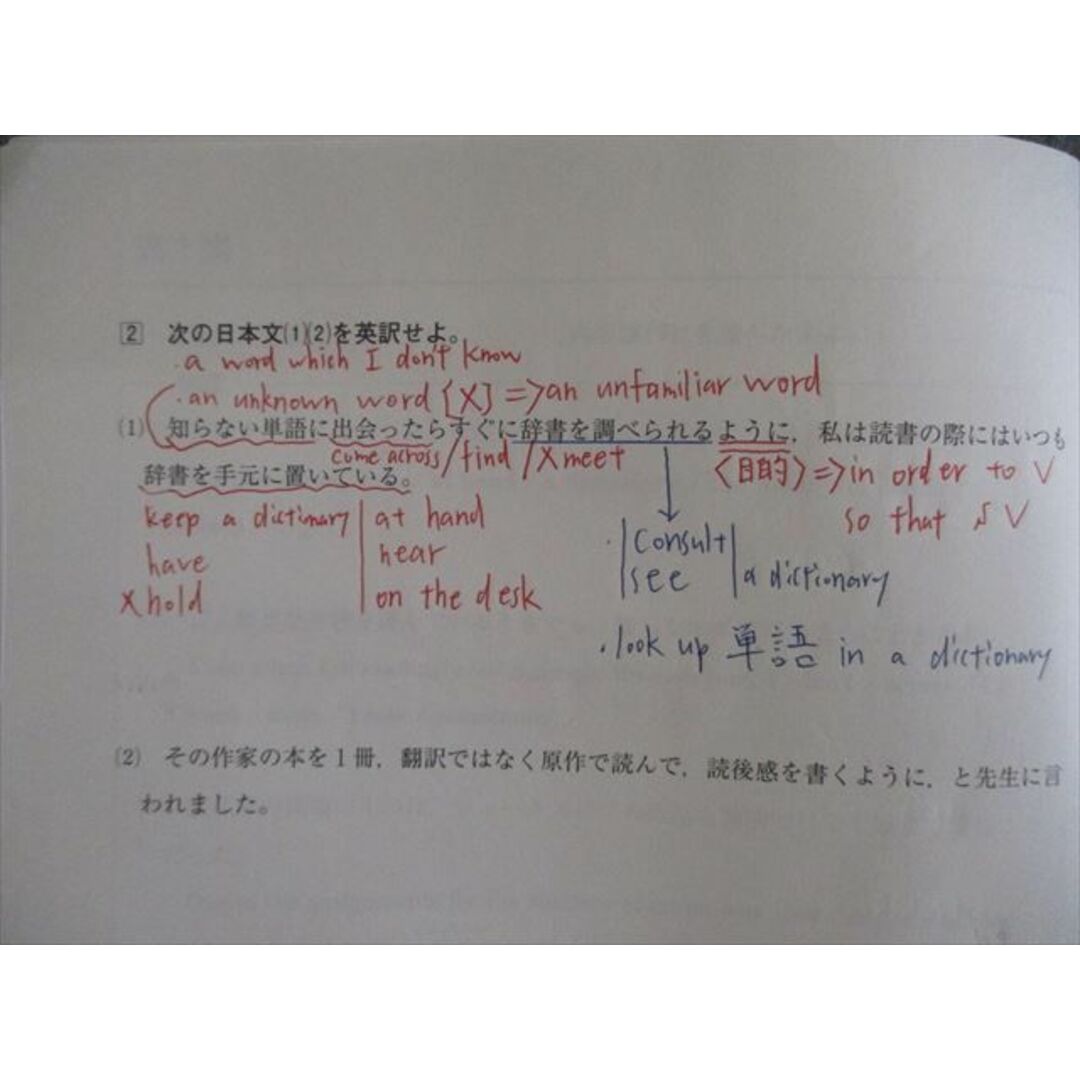 2 次の日本文(1)(2)を英訳せよ。
・a word which I don't know
・an unknown word [X] => an unfamiliar word
(1) 知らない単語に出会ったらすぐに辞書を調べられるように，私は読書の際にはいつも
come across / find / X meet
〈目的〉=> in order to V
辞書を手元に置いている。
keep a dictionary | at hand
so that S V
have | near
X hold | on the desk
・| consult | a dictionary
| see |
・look up 単語 in a dictionary
(2) その作家の本を1冊，翻訳ではなく原作で読んで，読後感を書くように，と先生に言
われました。